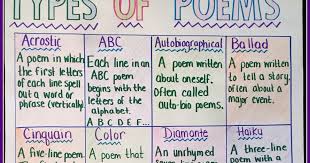 TYPES OF POEMS
Acrostic
A poem in which
the first letters
of each line spell
out a word or
phrase (vertically)
ABC
Each line in an
ABC poem
begins with the
letters of the
alphabet.
A B C D E F...
Autobiographical
A poem written
about oneself.
Often called
auto-bio poems.
Ballad
A poem written
to tell a story,
often about a
major event.
Cinquain
A five-line poem
Color
A poem that
Diamonte
An unrhymed
Haiku
A three-line
poem with a